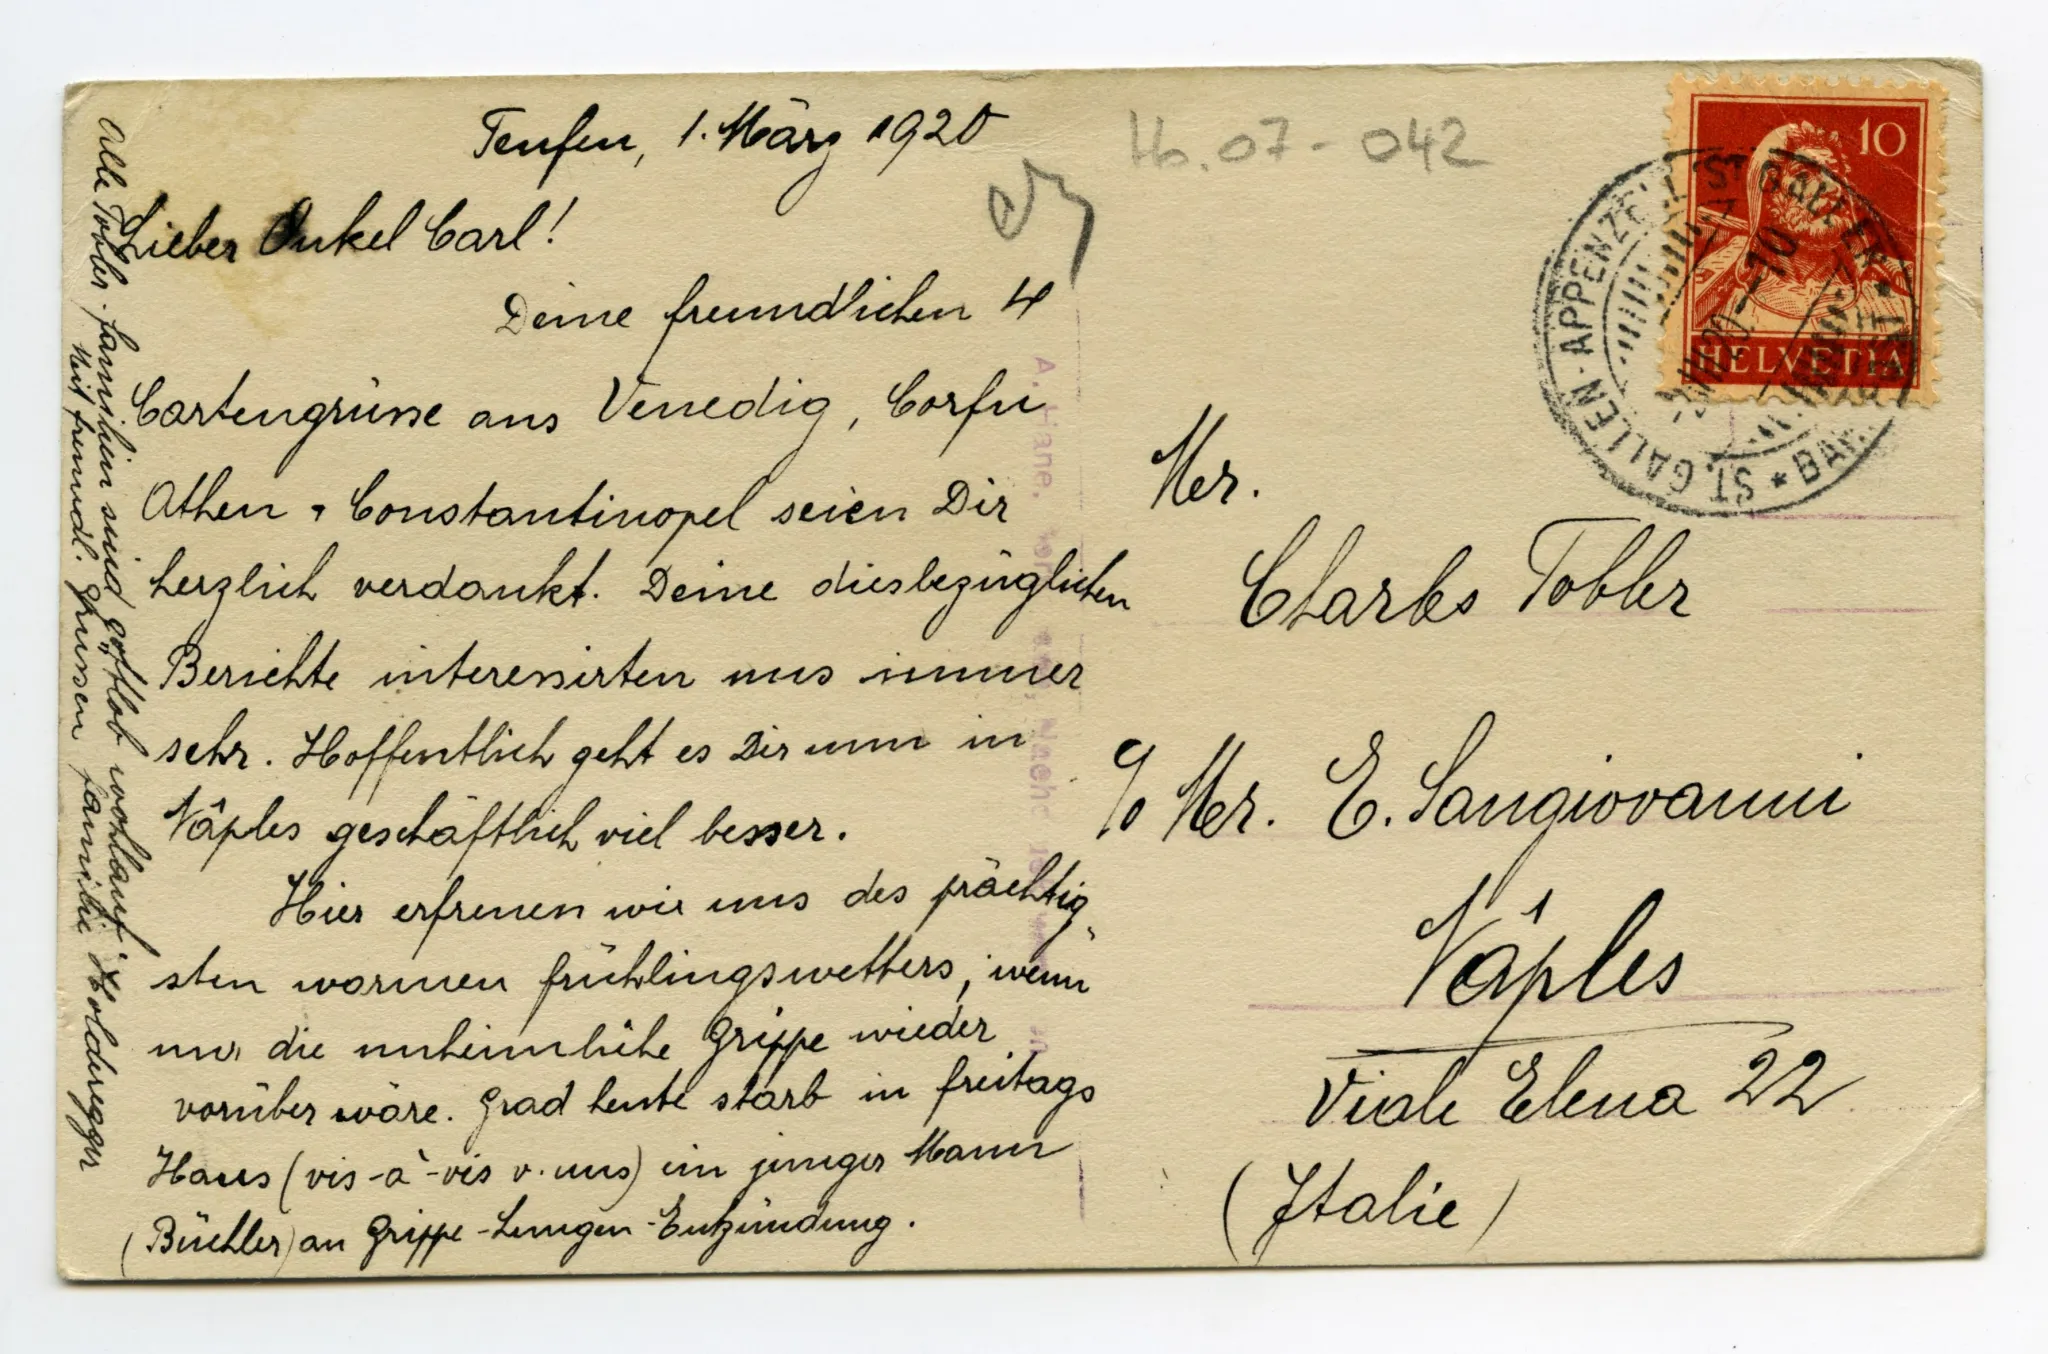 Teufen, 1. März 1920
Lieber Onkel Carl!
Deine freundlichen 4
Cartengrüsse aus Venedig, Corfu
Athen & Constantinopel seien Dir
herzlich verdankt. Deine diesbezüglichen
Berichte interessirten uns immer
sehr. Hoffentlich geht es Dir nun in
Nâples geschäftlich viel besser.
Hier erfreuen wir uns des prächtig„
sten warmen Frühlingswetters, wenn
nur die unheimliche Grippe wieder
vorüber wäre. Grad heute starb in Freitags
Haus (vis-à-vis v. uns) ein junger Mann
(Büchler) an Grippe-Lungen-Entzündung.
Alle Tobler-Familien sind gottlob wohlauf.
Mit freundl. Grüssen Familie Holderegger
Hb. 07 - 042
10
HELVETIA
ST. GALLEN · APPENZELL
ST GALLEN
Mr.
Charles Tobler
c/o Mr. E. Sangiovanni
Nâples
Viale Elena 22
(Italie)